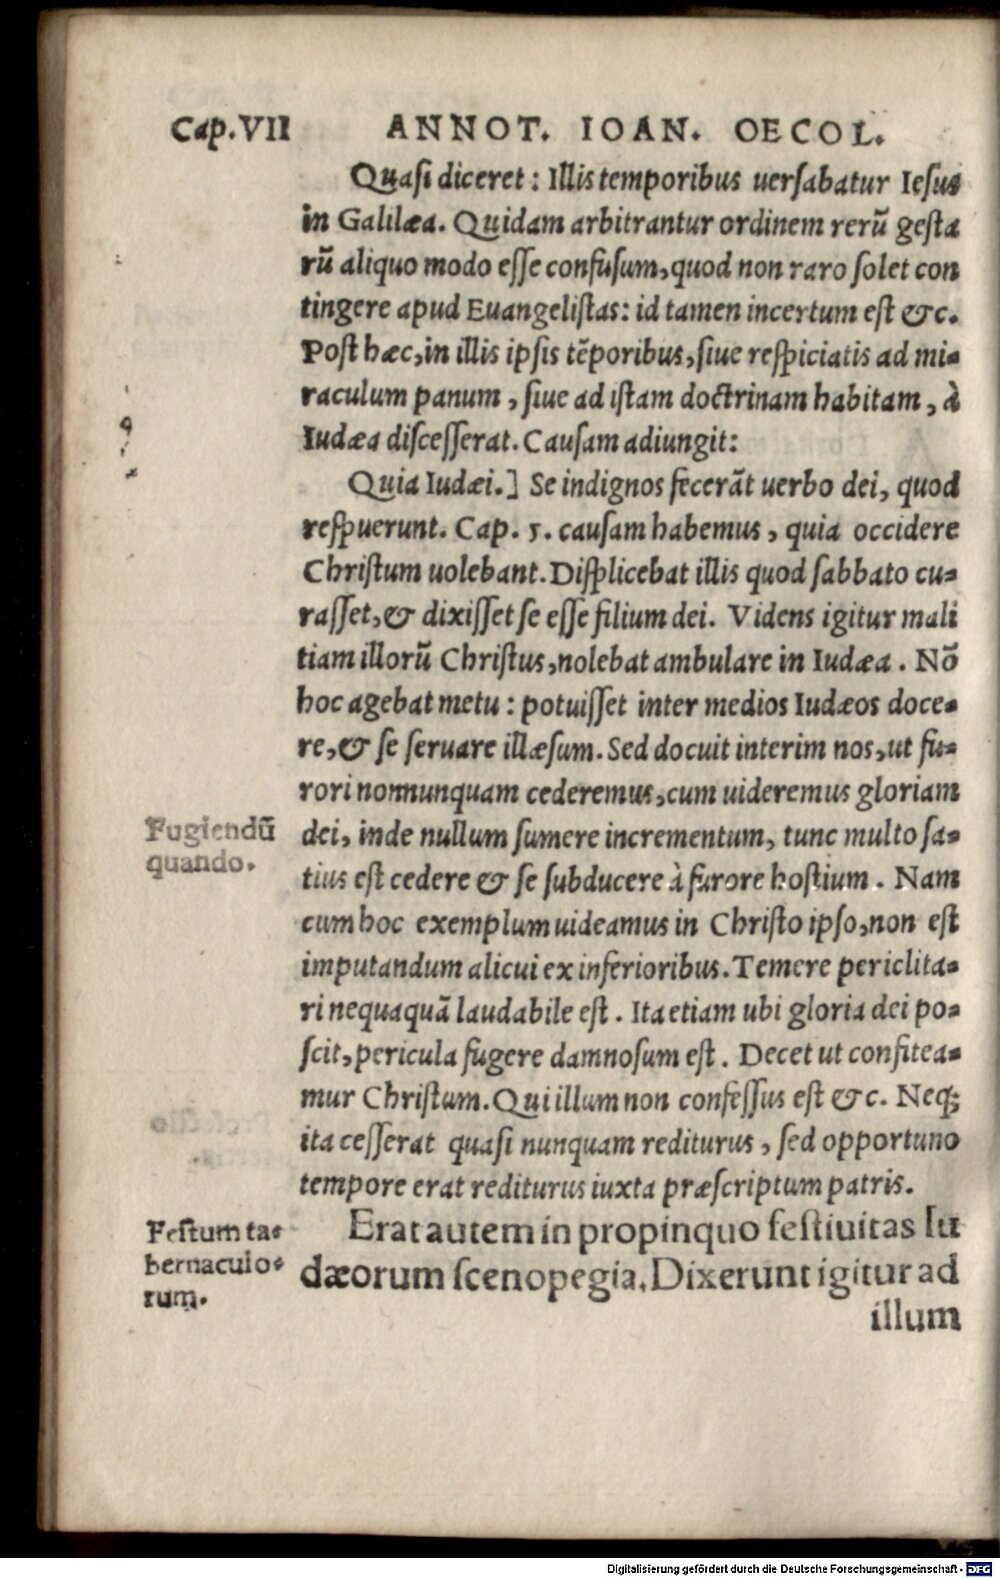 Cap.VII ANNOT. IOAN. OECOL.
Quasi diceret: Illis temporibus uersabatur Iesus
in Galilæa. Quidam arbitrantur ordinem rerũ gesta
rũ aliquo modo esse confusum, quod non raro solet con
tingere apud Euangelistas: id tamen incertum est &c.
Post hæc, in illis ipsis tẽporibus, siue respiciatis ad mi=
raculum panum, siue ad istam doctrinam habitam, à
Iudæa discesserat. Causam adiungit:
Quia Iudæi.] Se indignos fecerãt uerbo dei, quod
respuerunt. Cap. 5. causam habemus, quia occidere
Christum uolebant. Displicebat illis quod sabbato cu=
rasset, & dixisset se esse filium dei. Videns igitur mali
tiam illorũ Christus, nolebat ambulare in Iudæa. Nõ
hoc agebat metu: potuisset inter medios Iudæos doce=
re, & se seruare illæsum. Sed docuit interim nos, ut fu=
rori nonnunquam cederemus, cum uideremus gloriam
Fugiendũ
quando.
dei, inde nullum sumere incrementum, tunc multo sa=
tius est cedere & se subducere à furore hostium. Nam
cum hoc exemplum uideamus in Christo ipso, non est
imputandum alicui ex inferioribus. Temere periclita=
ri nequaquã laudabile est. Ita etiam ubi gloria dei po=
scit, pericula fugere damnosum est. Decet ut confitea=
mur Christum. Qui illum non confessus est &c. Neq;
ita cesserat quasi nunquam rediturus, sed opportuno
tempore erat rediturus iuxta præscriptum patris.
Festum ta=
bernaculo=
rum.
Erat autem in propinquo festiuitas Iu
dæorum scenopegia. Dixerunt igitur ad
illum
Digitalisierung gefördert durch die Deutsche Forschungsgemeinschaft - DFG